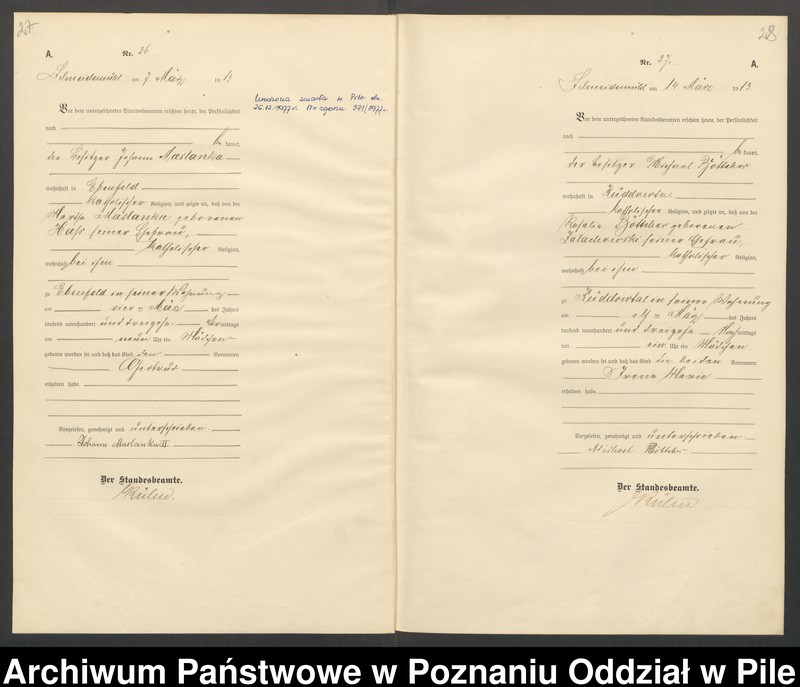 27
A.
Nr. 26
Schneidemühl am 7 März 1913
Urodzona zmarła w Pile dn.
26.12.1977 r. Nr zgonu 571/1977 r.
Vor dem unterzeichneten Standesbeamten erschien heute, der Persönlichkeit
nach
be kannt,
der Besitzer Johann Maslanka
wohnhaft in Ebenfeld
katholischer Religion, und zeigte an, daß von der
Martha Maslanka geborenen
Hass seiner Ehefrau,
katholischer Religion,
wohnhaft bei ihm
zu Ebenfeld in seiner Wohnung
am vier ten März des Jahres
tausend neunhundert und dreizehn Vormittags
um neun Uhr ein Mädchen
geboren worden sei und daß das Kind den Vornamen
Gertrud
erhalten habe.
Vorgelesen, genehmigt und unterschrieben.
Johann Maslanka II
Der Standesbeamte.
28
Nr. 27.
A.
Schneidemühl am 14 März 1913
Vor dem unterzeichneten Standesbeamten erschien heute, der Persönlichkeit
nach
be kannt,
der Besitzer Michael Böttcher
wohnhaft in Küddowtal
katholischer Religion, und zeigte an, daß von der
Rosalie Böttcher geborenen
seiner Ehefrau,
katholischer Religion,
wohnhaft bei ihm
zu Küddowtal in seiner Wohnung
am elf ten März des Jahres
tausend neunhundert und dreizehn Nachmittags
um ein Uhr ein Mädchen
geboren worden sei und daß das Kind die beiden Vornamen
Irene Marie
erhalten habe.
Vorgelesen, genehmigt und unterschrieben
Michael Böttcher
Der Standesbeamte.
Archiwum Państwowe w Poznaniu Oddział w Pile